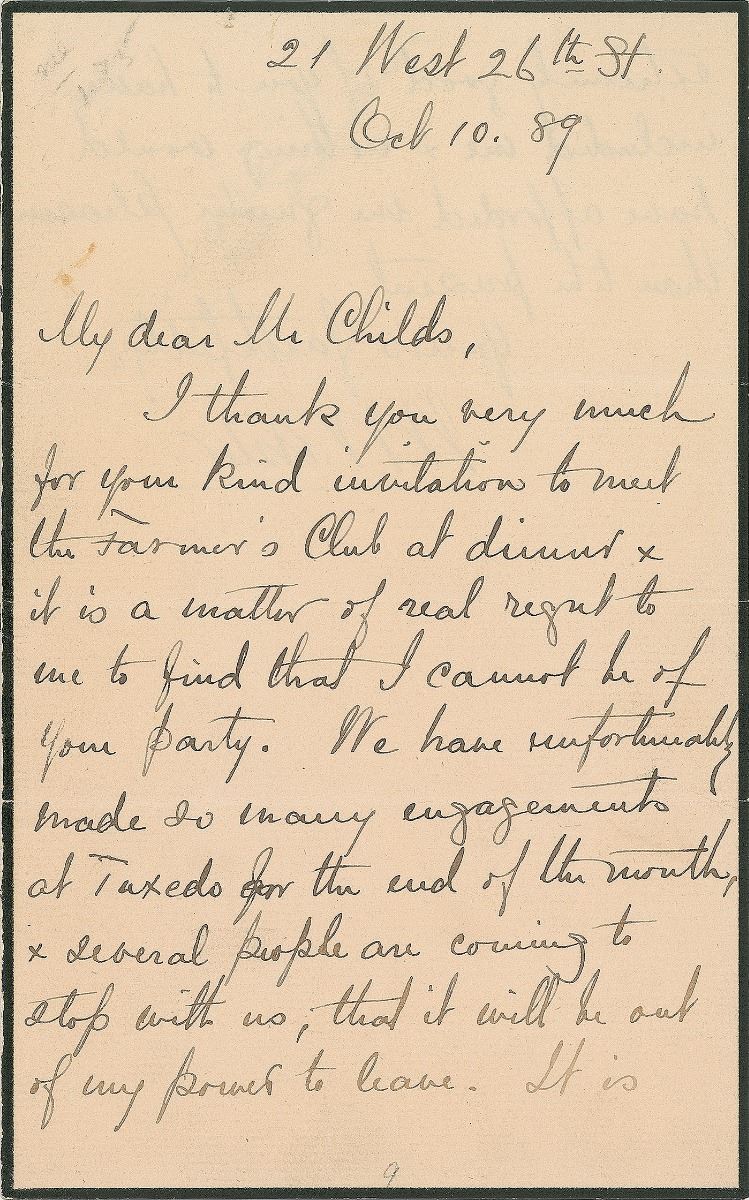 21 West 26th St.
Oct 10. 89
My dear Mr Childs,
I thank you very much
for your kind invitation to meet
the Farmer's Club at dinner x
it is a matter of real regret to
me to find that I cannot be of
your party. We have unfortunately
made so many engagements
at Tuxedo for the end of the month,
x several people are coming to
stop with us, that it will be out
of my power to leave. It is
9